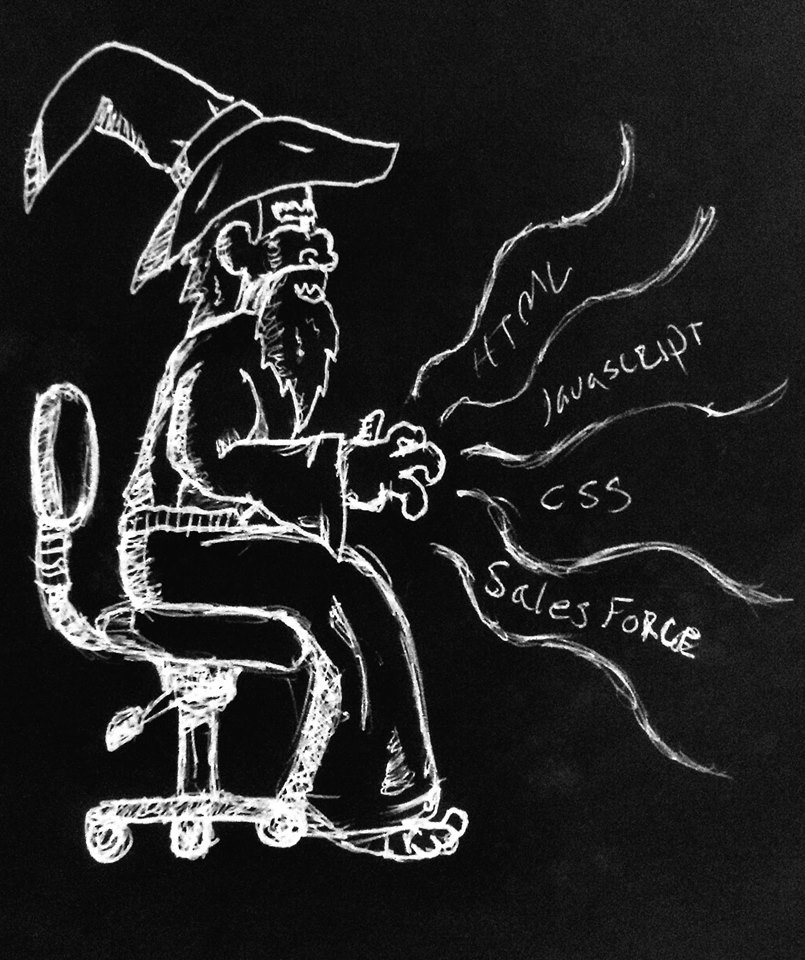 HTML
Javascript
CSS
Sales Force